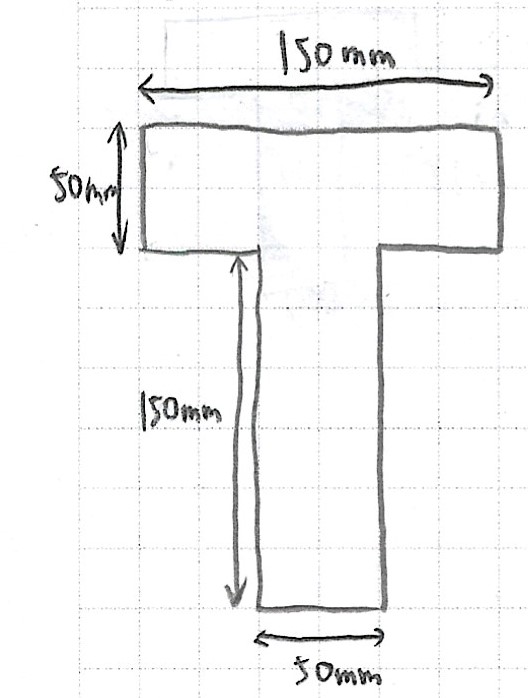 150mm
50mm
150mm
50mm